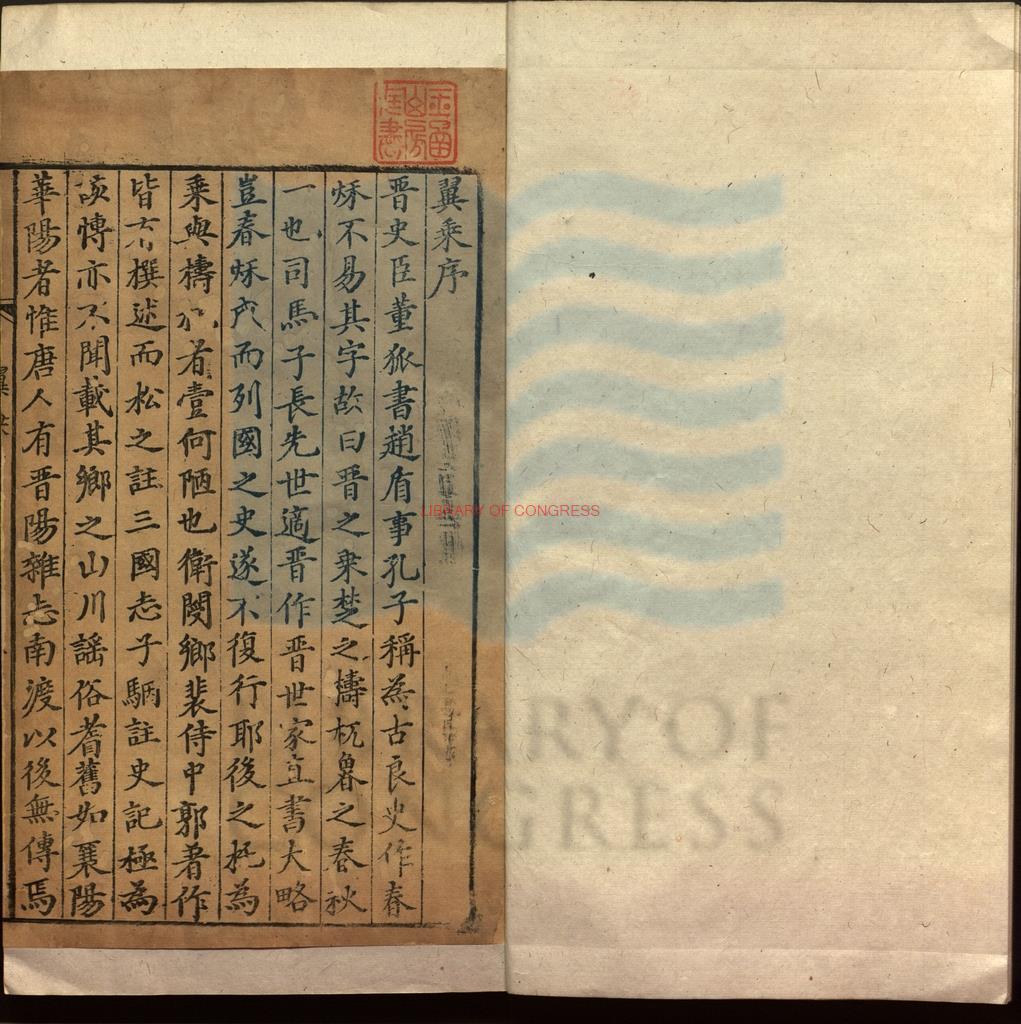 翼乘序
晋史臣董狐書趙盾事孔子稱為古良史作春
秌不易其字故曰晋之乗楚之檮杌魯之春秋
一也司馬子長先世適晋作晋世家直書大略
豈春秌成而列國之史遂不復行耶後之抚為
乘與檮杌者壹何陋也衛閿鄉裴侍中郭著作
皆有撰述而松之註三國志子駰註史記極為
該愽亦不聞載其鄉之山川謡俗耆舊如襄陽
華陽者惟唐人有晋陽雜志南渡以後無傳焉
玉函山房藏書
LIBRARY OF CONGRESS
LIBRARY OF CONGRESS